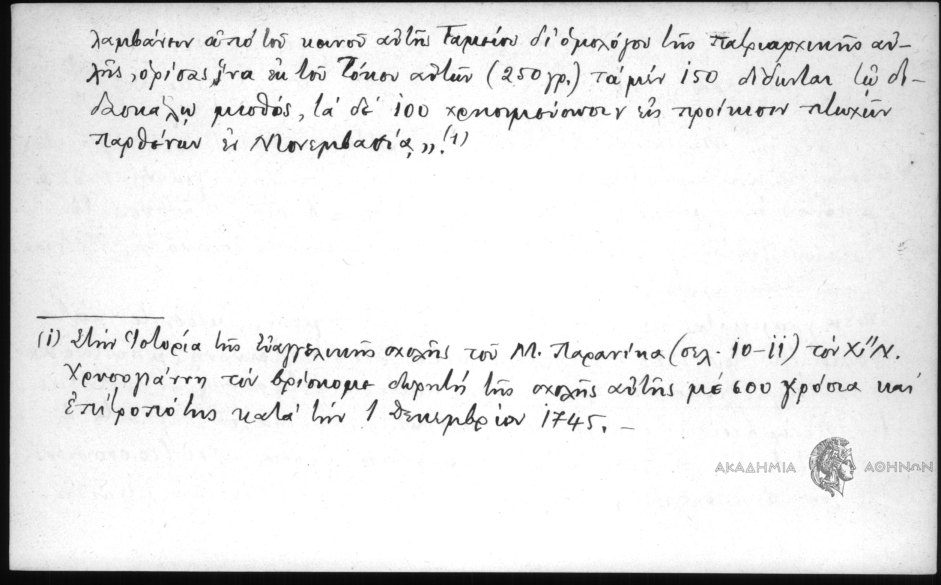 λαμβάνειν ἀπὸ τοῦ κοινοῦ αὐτῆς Ταμείου δι' ὁμολόγου τῆς πατριαρχικῆς αὐ-
λῆς, ὁρίσας ἵνα ἐκ τοῦ Τόκου αὐτῶν (250 γρ.) τὰ μὲν 150 δίδωνται τῷ δι-
δασκάλῳ μισθός, τὰ δὲ 100 χρησιμεύσωσιν εἰς προίκισιν πτωχῶν
παρθένων ἐν Μονεμβασίᾳ„.(1)
(1) Στὴν Ἱστορία τῆς Εὐαγγελικῆς σχολῆς τοῦ Μ. Παρανίκα (σελ. 10-11) τὸν Χ''Ν.
Χρυσογιάννη τὸν βρίσκομε δωρητὴ τῆς σχολῆς αὐτῆς μὲ 600 γρόσια καὶ
ἐπίτροπό της κατὰ τὴν 1 Δεκεμβρίου 1745. –
ΑΚΑΔΗΜΙΑ ΑΘΗΝΩΝ